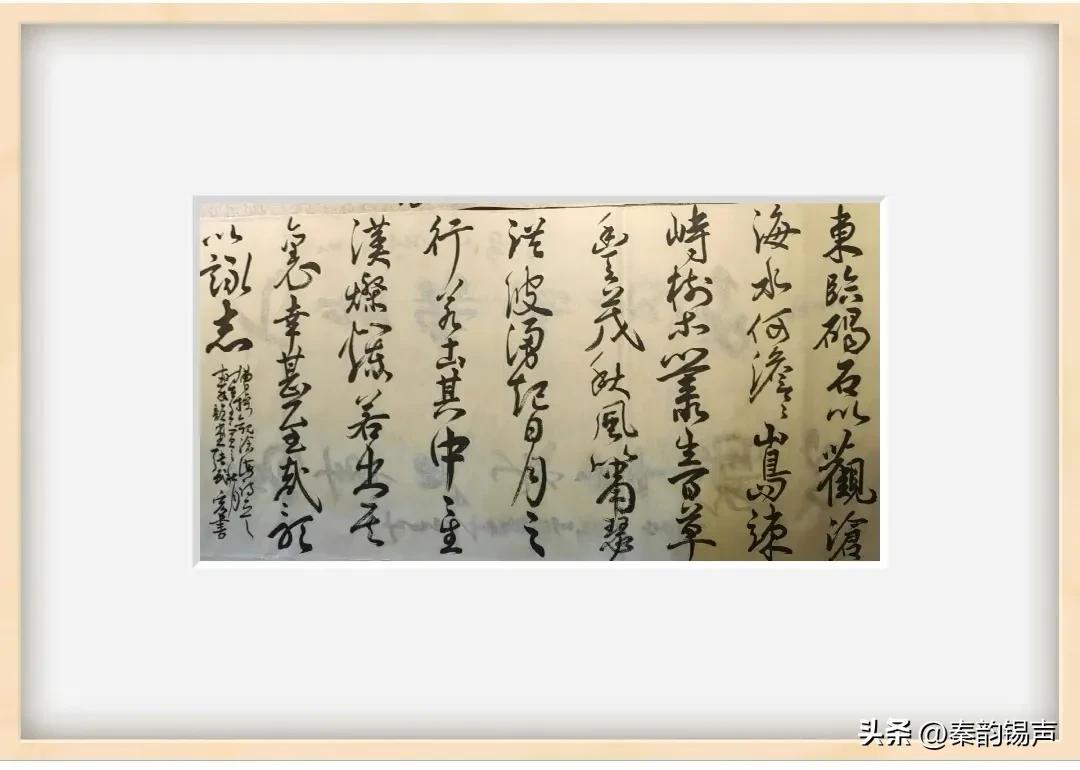 東臨碣石以觀滄
海水何澹〻山島竦
峙樹木叢生百草
豐茂秋風蕭瑟
洪波湧起日月之
行若出其中星
漢燦爛若出其
裏幸甚至哉歌
以詠志
曹操觀滄海詩
头条 @秦韵锡声